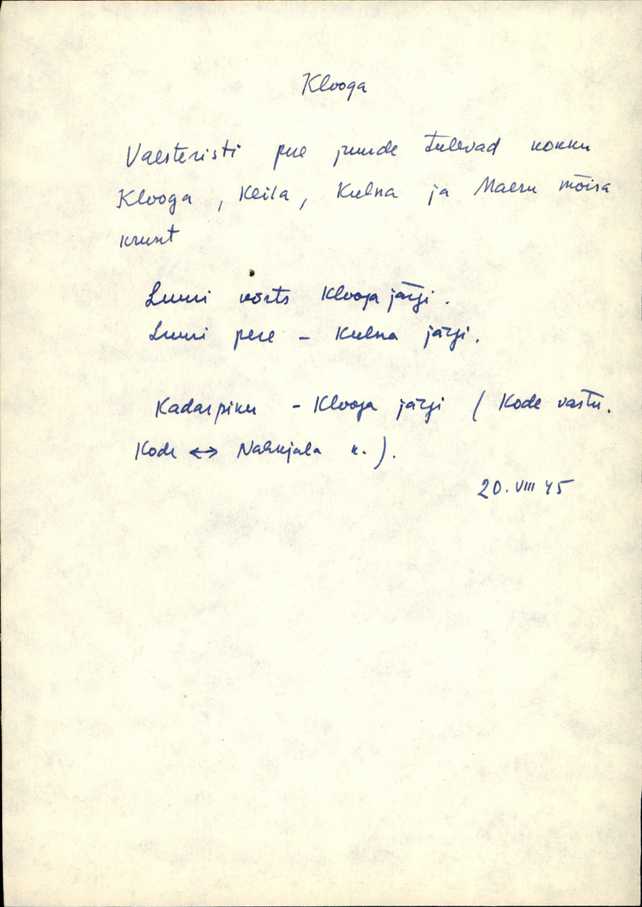 Klooga
Valsteristi pere juurde tulevad kokku
Klooga, Keila, Kulna ja Maeru mõisa
krunt
Lumi kõrts Klooga järgi.
Lumi pere - Kulna järgi.
Kadarpiku - Klooga järgi ( Kode vastu.
Kode ↔ Nahkjala k. ).
20. VIII 45